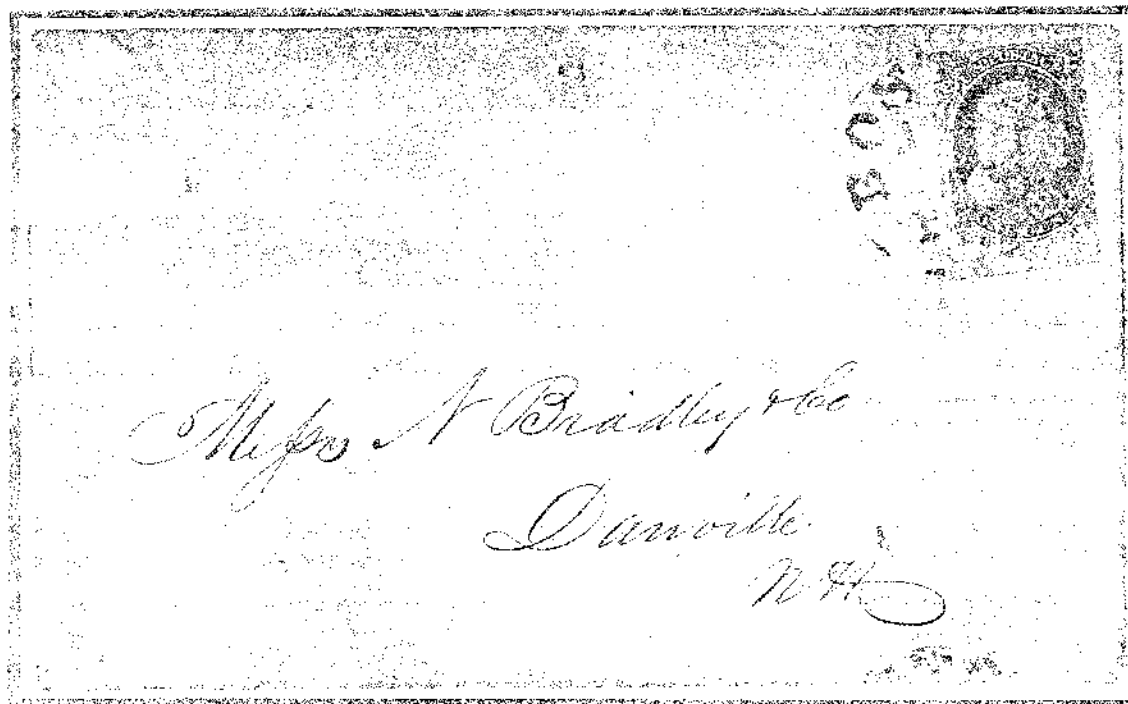 BOS
Messrs N Bradley & Co
Danville
N.H.